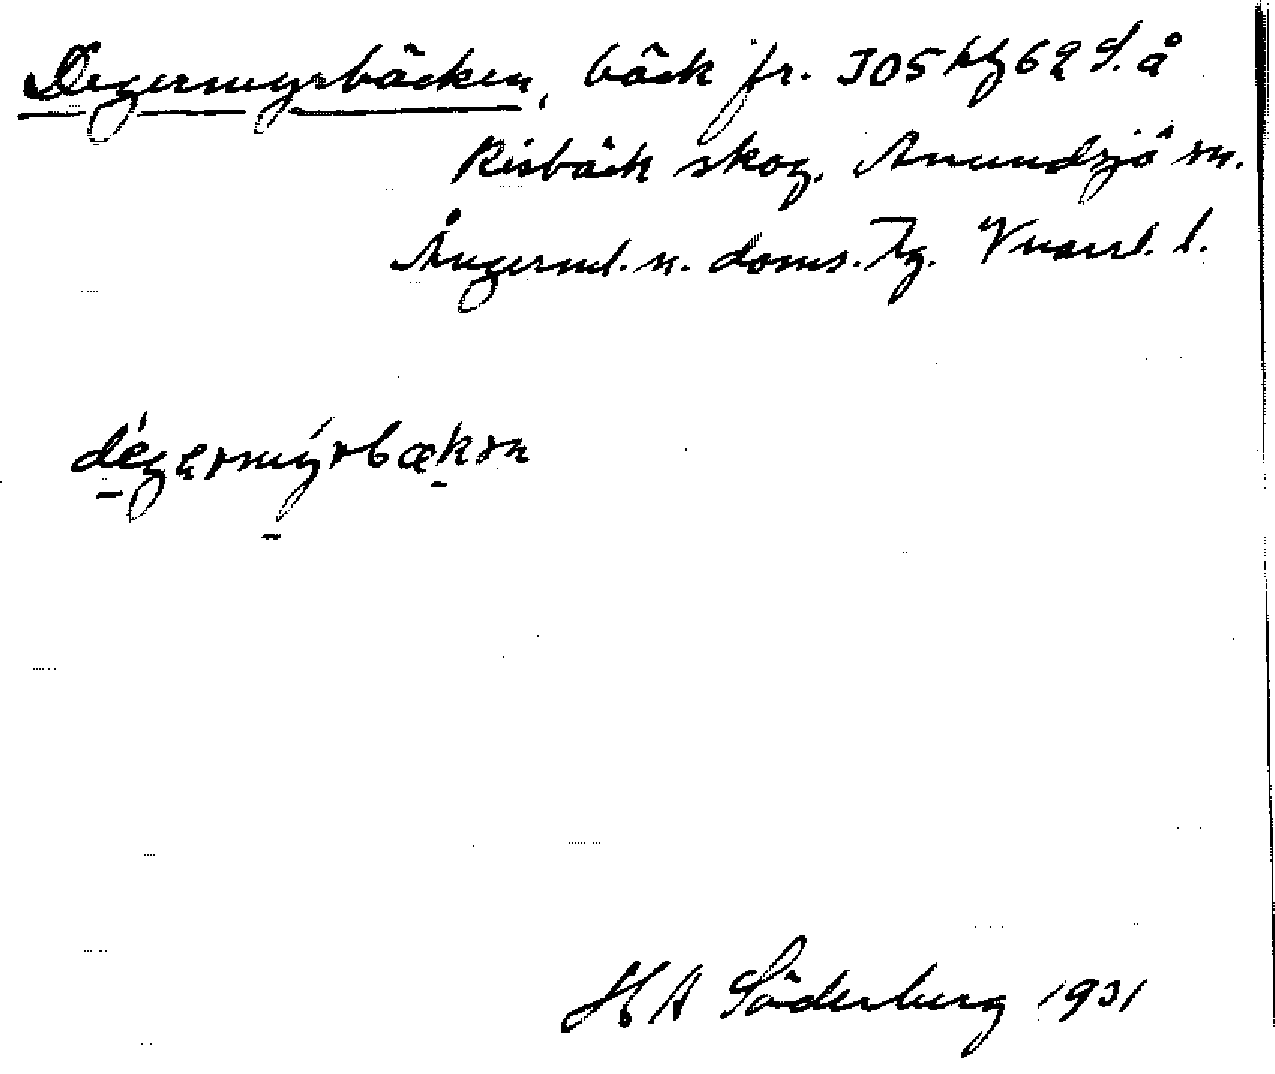 Degermyrbäcken, bäck fr. JO5 hf62 S. å
Risbäck skog. Anundsjö sn.
Ångerml. n. doms. Tg. Vnorrl. l.
dégermýrbækən
H A Söderberg 1931